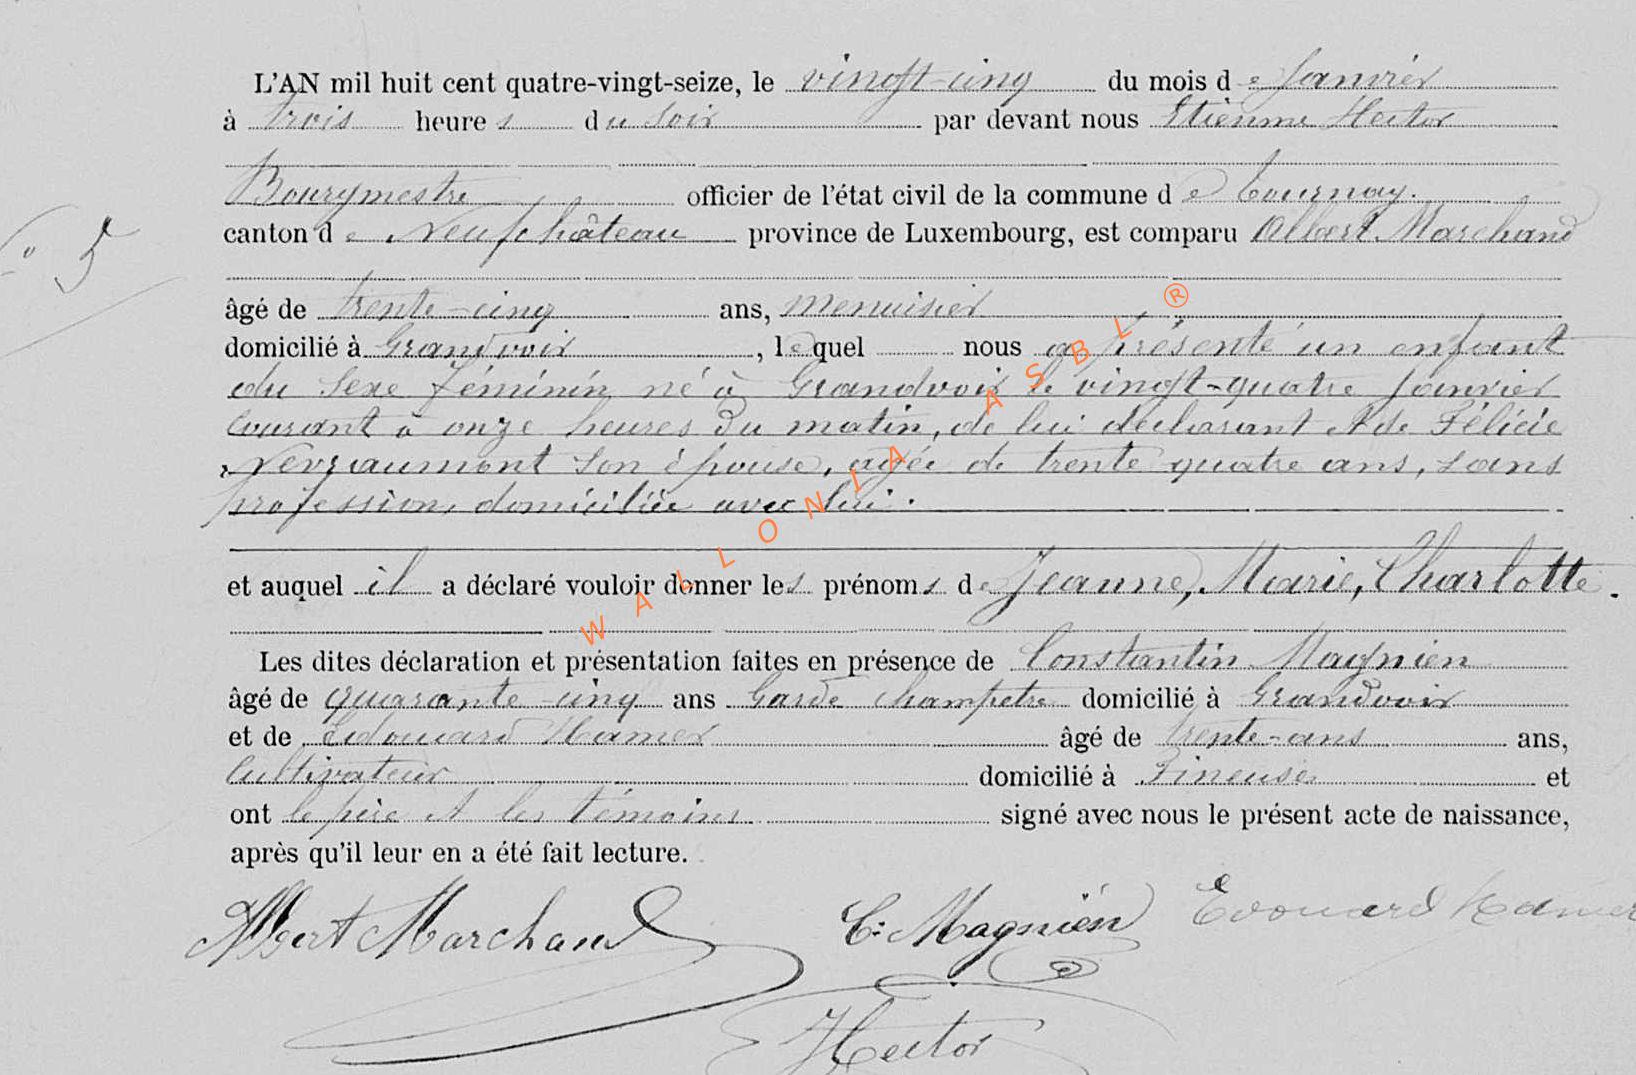 L'AN mil huit cent quatre-vingt-seize, le vingt-cinq du mois de Janvier
à trois heures du soir par devant nous Etienne Hector
Bourgmestre officier de l'état civil de la commune de Tournay.
N° 5
canton de Neufchâteau province de Luxembourg, est comparu Albert Marchand
âgé de trente-cinq ans, menuisier
domicilié à Grandvoir, lequel nous a présenté un enfant
du sexe féminin né à Grandvoir le vingt-quatre Janvier
courant à onze heures du matin, de lui déclarant et de Félicie
Nevraumont son épouse, agée de trente quatre ans, sans
profession, domiciliée avec lui.
et auquel il a déclaré vouloir donner les prénoms de Jeanne, Marie, Charlotte.
Les dites déclaration et présentation faites en présence de Constantin Magnien
âgé de quarante-cinq ans Garde champetre domicilié à Grandvoir
et de Edouard Hamer âgé de trente-ans ans,
Cultivateur domicilié à Fineuse et
ont le père et les témoins signé avec nous le présent acte de naissance,
après qu'il leur en a été fait lecture.
Albert Marchand C: Magnien Edouard Hamer
Hector
WALLONIA ASBL ®